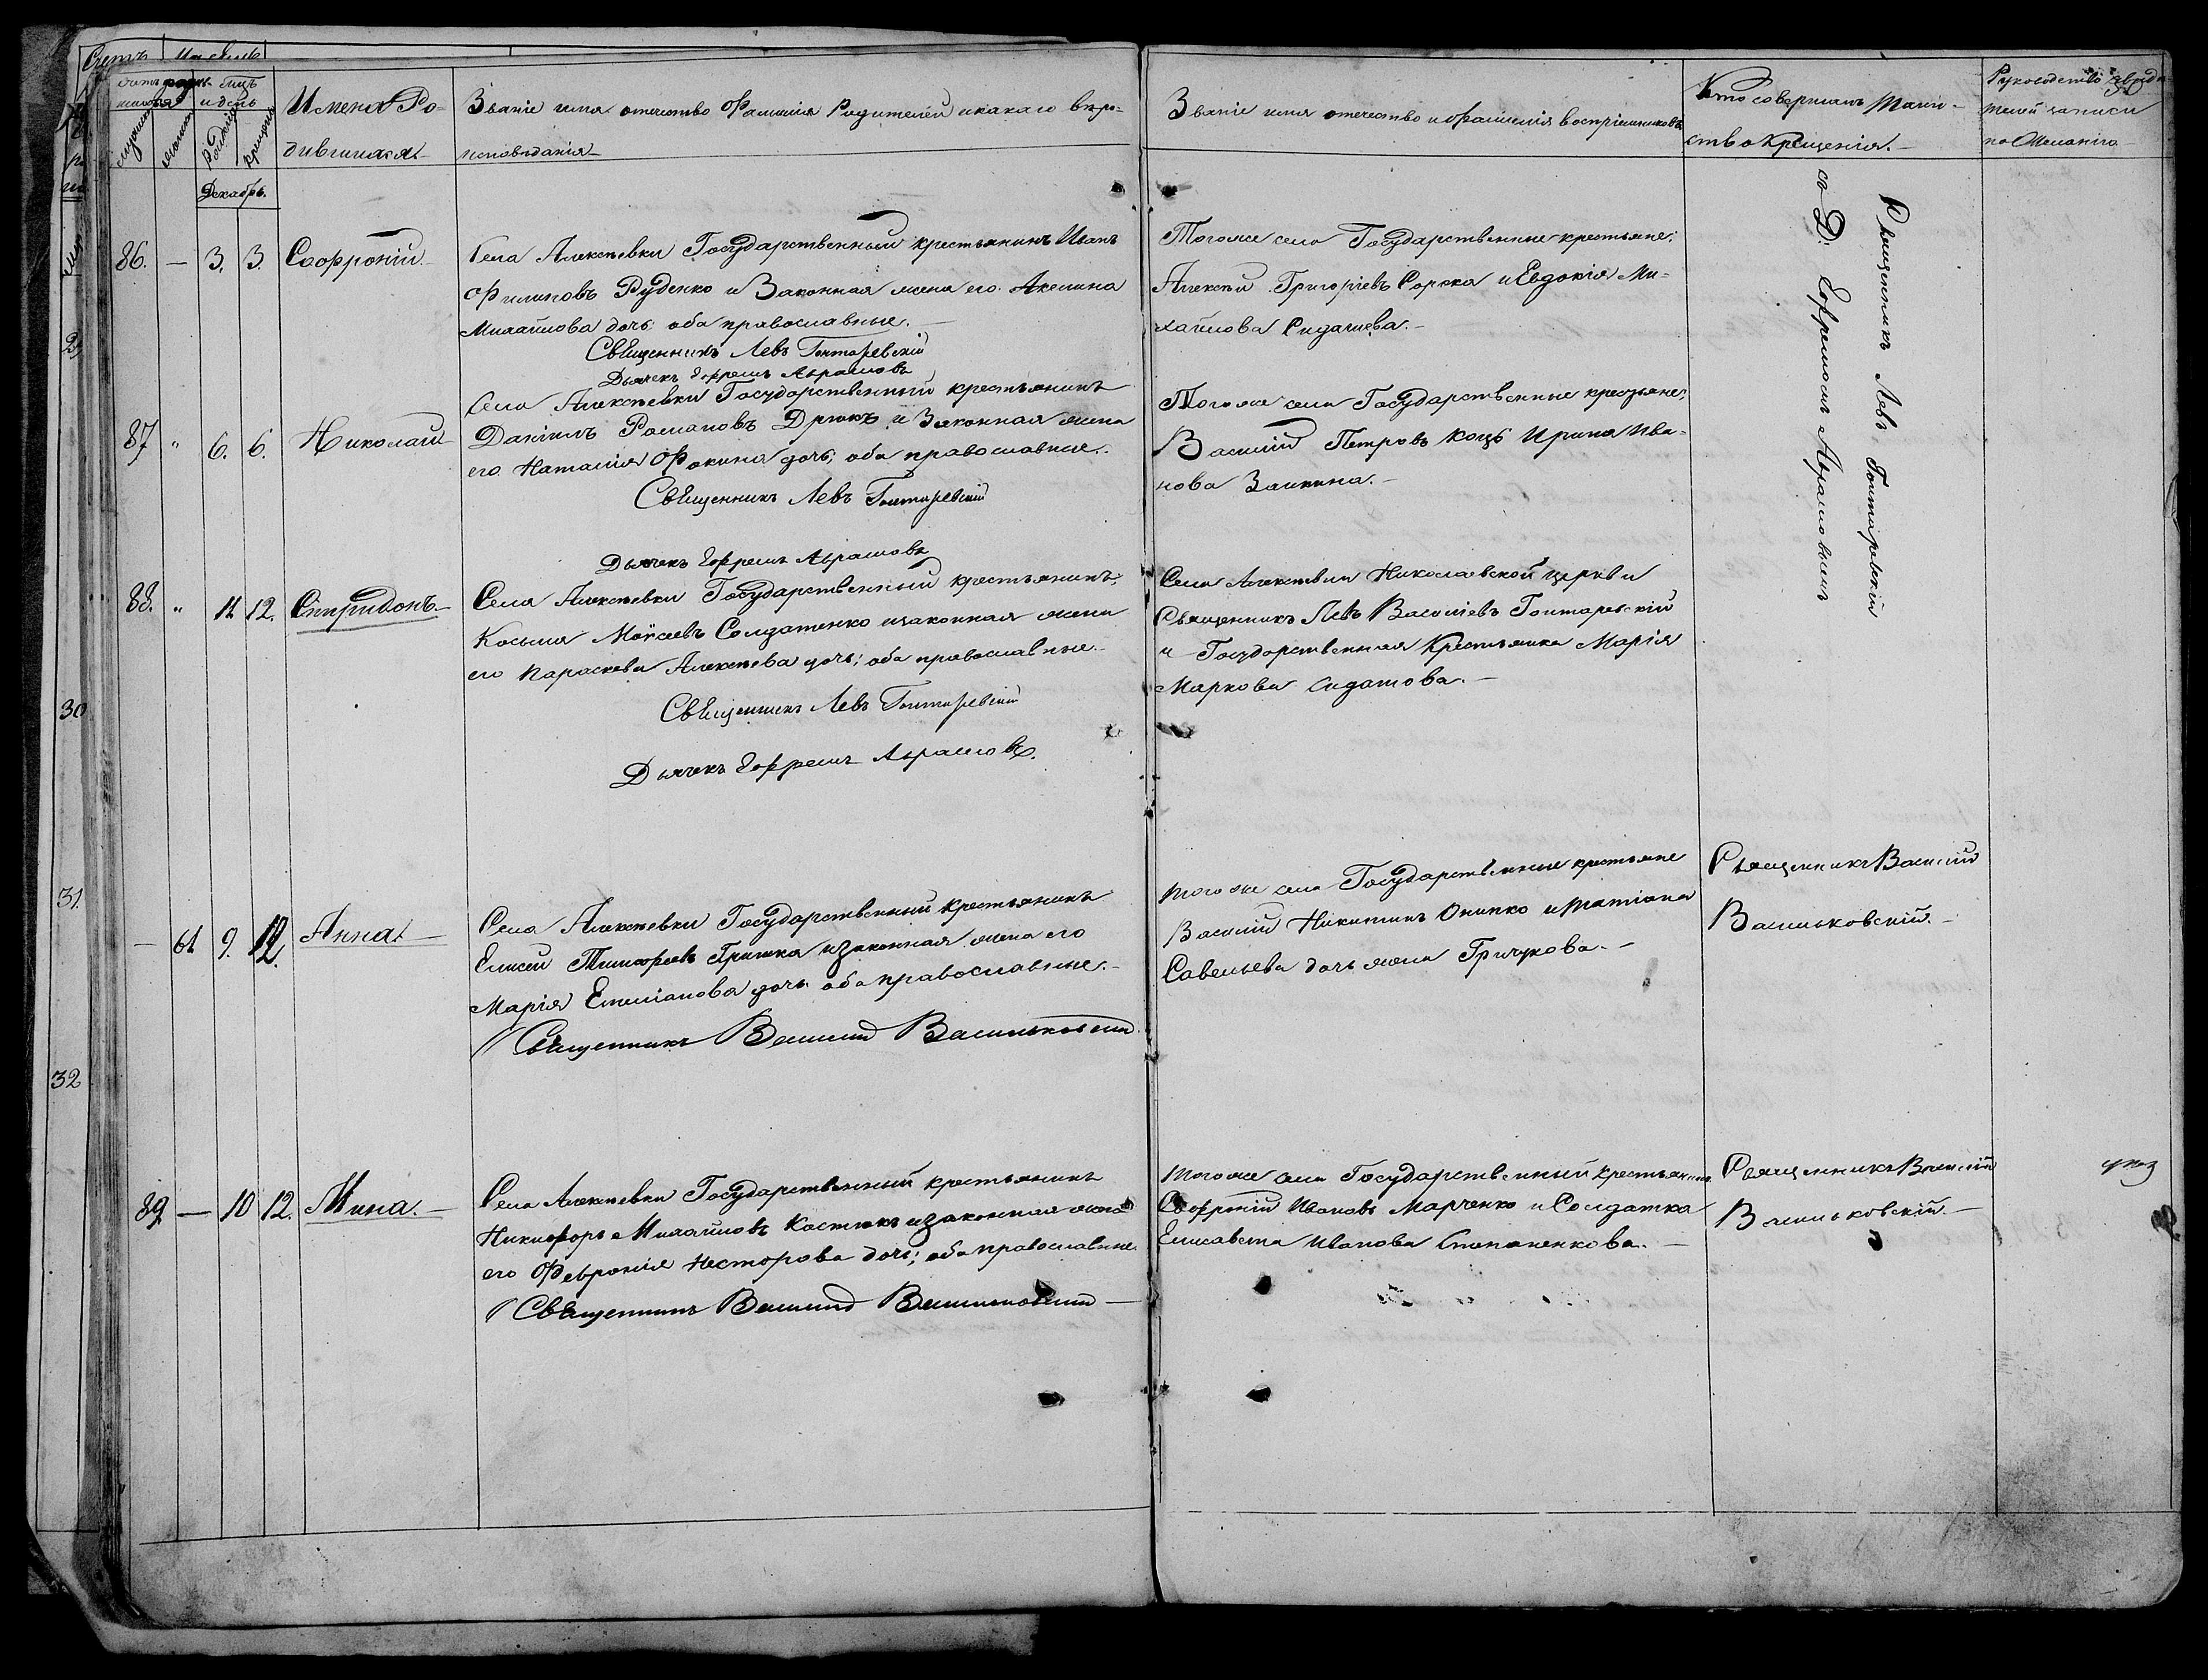 Счетъ родив-
шихся
Мѣсяцъ
и день
Имена Ро-
дившихся
Званіе имя отечество Фамилія Родителей и какаго вѣро-
исповѣданія
Званіе имя отечество и фамилія воспріемниковъ
Кто совершалъ Таин-
ство крещенія.
по желанію
мужеска
женска
рожденія
крещенія
Декабрь.
86. — 3. 3. Софроній
Села Алексѣевки Государственный крестьянинъ Иванъ
Филиповъ Руденко и Законная жена его Акелина
Михайлова дочь оба православные.
Священникъ Левъ Гонтаревскій
Дьячекъ Ефремъ Абрамовъ
Тогоже села Государственные крестьяне:
Алексѣй Григоріевъ Сорока и Евдокія Ми-
хайлова
Священникъ Левъ Гонтаревскій
съ Д. Ефремомъ Абрамовымъ
87 „ 6. 6. Николай
Села Алексѣевки Государственный крестьянинъ
Даніилъ Романовъ Дрюкъ и Законная жена
его Наталія Фокина дочь; оба православные.
Священникъ Левъ Гонтаревскій
Дьячекъ Ефремъ Абрамовъ
Тогоже села Государственные крестьяне:
Василій Петровъ Коцъ Ирина Ива-
нова Заикина.
88. „ 11 12. Спиридонъ
Села Алексѣевки Государственный крестьянинъ
Косьма Моѵсеевъ Солдатенко изаконная жена
его Параскева Алексѣева дочь; оба православные.
Священникъ Левъ Гонтаревскій
Дьячекъ Ефремъ Абрамовъ.
Села Алексѣевки Николаевской церкви
Священникъ Левъ Василіевъ Гонтаревскій
и Государственная Крестьянка Марія
Маркова
— 61 9. 12. Анна
Села Алексѣевки Государственный крестьянинъ
Елисей Тимофеевъ Гришка изаконная жена его
Марія Емеліанова дочь оба православные.
Священникъ Василій Васильковскій
того же села Государственные крестьяне
Василій Никитинъ Онипко и Татіана
Савельева дочь жена Гричукова.
Священникъ Василій
Васильковскій.
89 — 10 12. Мина.
Села Алексѣевки Государственный крестьянинъ
Никифоръ Михайловъ Костюкъ изаконная жена
его Февронія Несторова дочь; оба православные
Священникъ Василій Васильковскій
того же села Государственный крестьянинъ
Софроній Ивановъ Марченко и Солдатка
Елисавета Иванова Степаненкова.
Священникъ Василій
Васильковскій.
30
31.
32